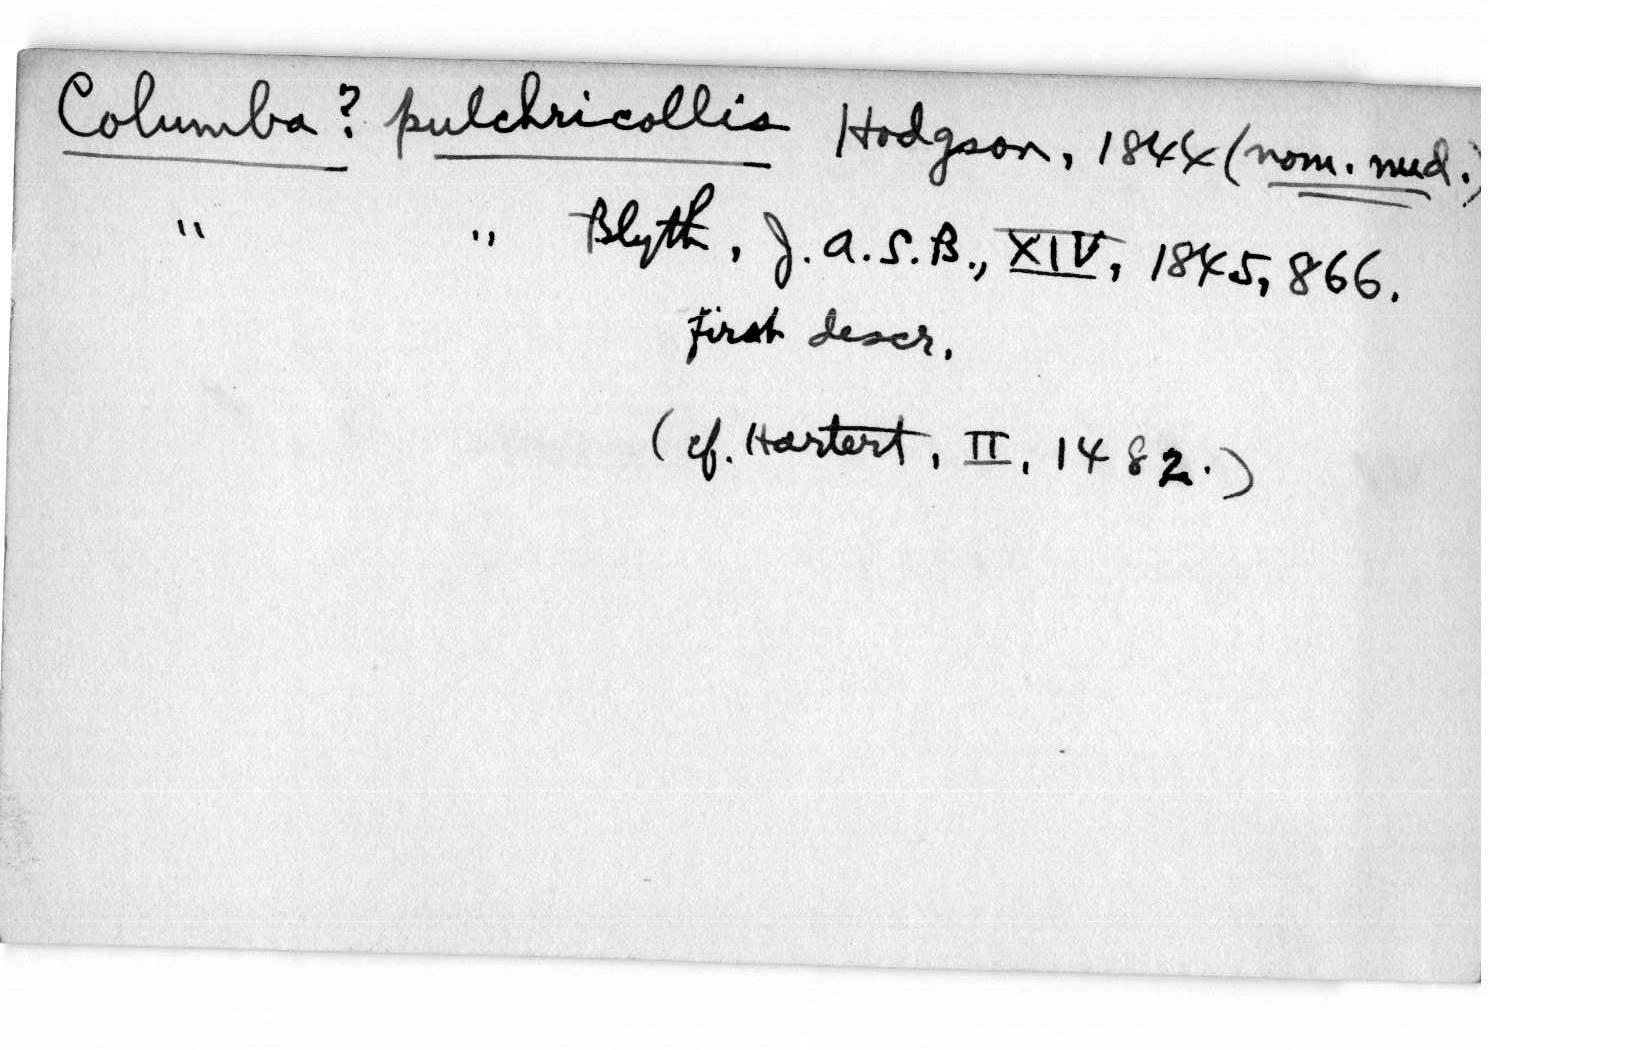 Columba? pulchricollis Hodgson, 1844 (nom. nud.)
" " Blyth, J.A.S.B., XIV, 1845, 866.
First descr.
(cf. Hartert, II, 1482.)